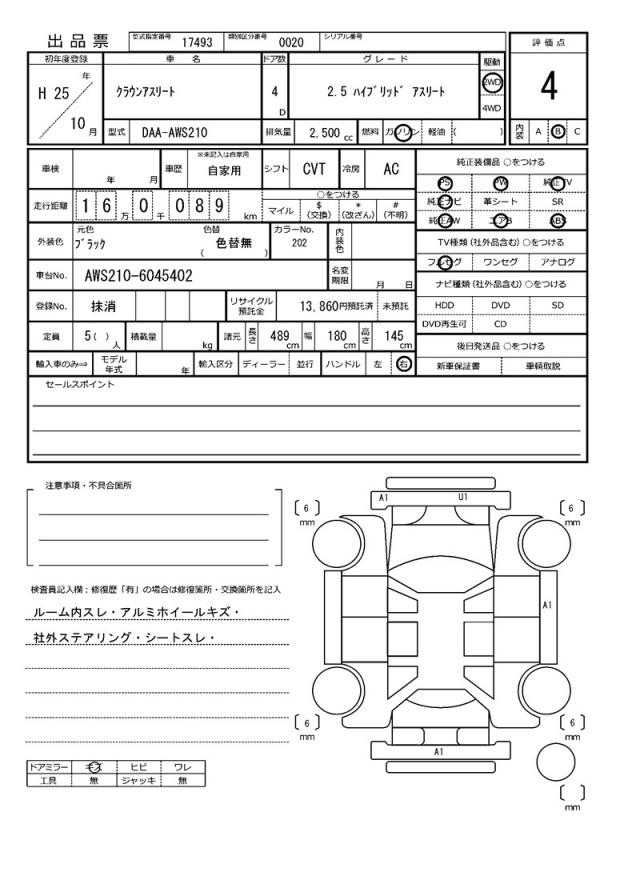 出品票 型式指定番号 17493 類別区分番号 0020 シリアル番号
評価点
4
初年度登録 車名 ドア数 グレード 駆動
H 25 年 10 月 クラウンアスリート 4 D 2.5 ハイブリッド アスリート 2WD 4WD
型式 DAA-AWS210 排気量 2,500 cc 燃料 ガソリン 軽油 ( )
内装 A B C
車検 年 月 車歴 ※未記入は自家用 自家用 シフト CVT 冷房 AC
走行距離 1 6 万 0 千 0 8 9 km
○をつける
マイル $ (交換) * (改ざん) # (不明)
外装色 元色 ブラック 色替 色替無 ( ) カラーNo. 202 内装色
車台No. AWS210-6045402 名変期限 月 日
登録No. 抹消 リサイクル預託金 13,860円預託済 未預託
定員 5( ) 人 積載量 kg 諸元 長さ 489 cm 幅 180 cm 高さ 145 cm
輸入車のみ⇒ モデル年式 年 輸入区分 ディーラー 並行 ハンドル 左 右
純正装備品 ○をつける
PS PW 純正TV
純正ナビ 革シート SR
純正AW エアB ABS
TV種類 (社外品含む) ○をつける
フルセグ ワンセグ アナログ
ナビ種類 (社外品含む) ○をつける
HDD DVD SD
DVD再生可 CD
後日発送品 ○をつける
新車保証書 車輌取説
セールスポイント
注意事項・不具合箇所
検査員記入欄：修復歴「有」の場合は修復箇所・交換箇所を記入
ルーム内スレ・アルミホイールキズ・
社外ステアリング・シートスレ・
ドアミラー キズ ヒビ ワレ
工具 無 ジャッキ 無
A1 U1
6 mm
6 mm
A1
6 mm
6 mm
A1
mm